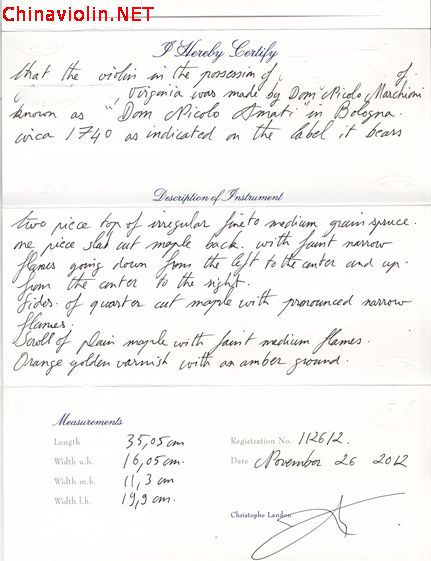 Chinaviolin.NET
I Hereby Certify
that the violin in the possession of of
, Virginia was made by Dom Nicolo Marchioni
known as "Dom Nicolo Amati" in Bologna.
circa 1740 as indicated on the label it bears
Description of Instrument
two piece top of irregular fine to medium grain spruce.
one piece slab cut maple back. with faint narrow
flames going down from the left to the center and up.
from the center to the right.
Sides. of quarter cut maple with pronounced narrow
flames.
Scroll of plain maple with faint medium flames.
Orange golden varnish with an amber ground.
Measurements
Length 35,05 cm Registration No. 112612.
Width u.b. 16,05 cm. Date November 26 2012
Width m.b. 11,3 cm
Width l.b. 19,9 cm.
Christophe Landon